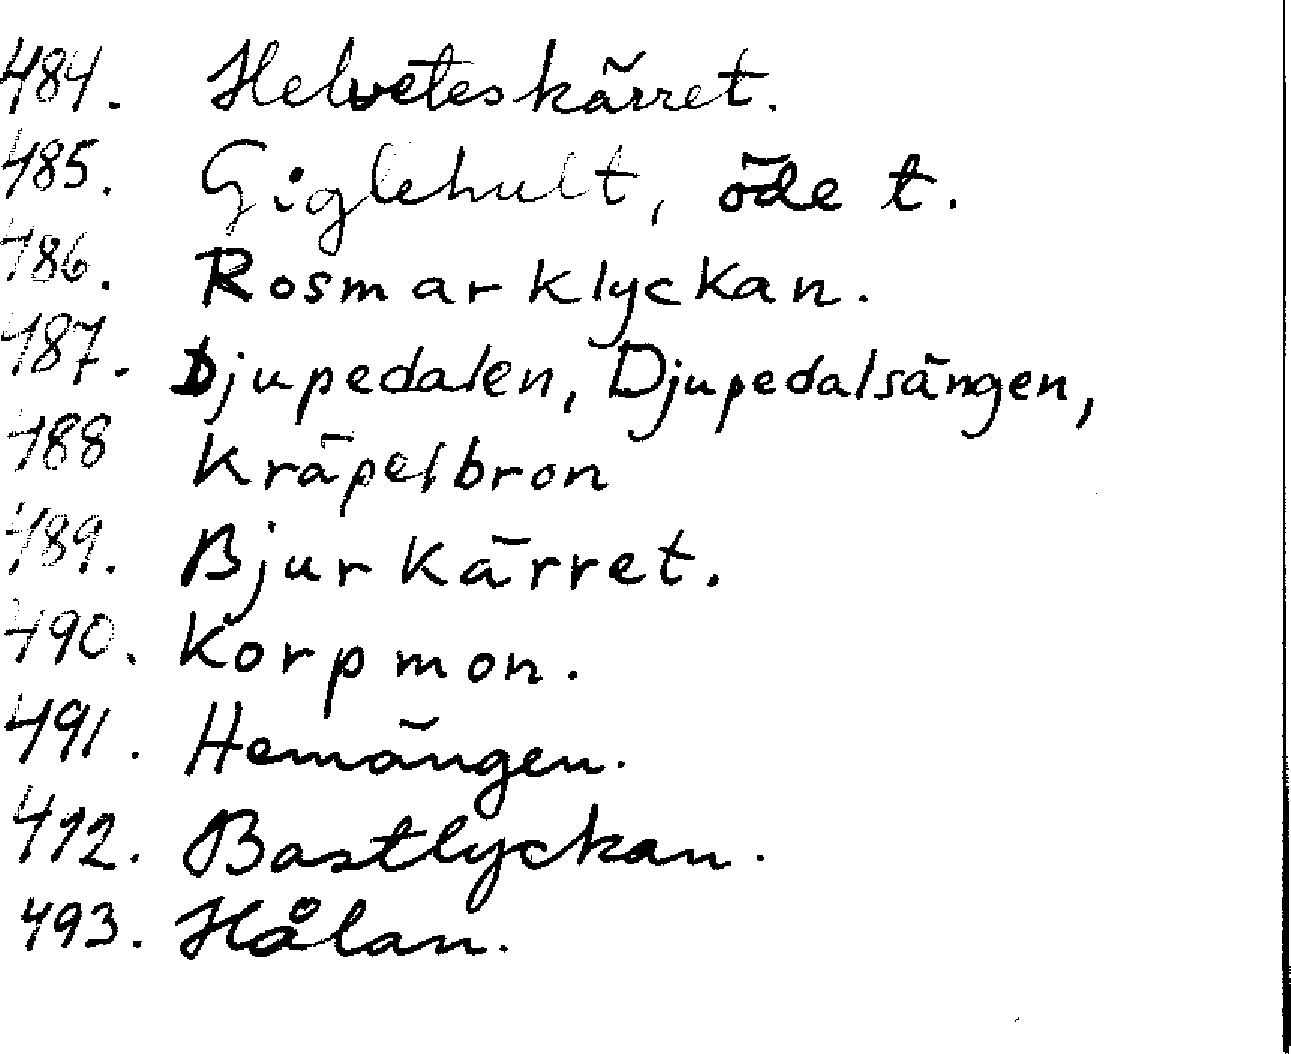 484. Helveteskärret.
485. Giglehult, öde t.
486. Rosmarklyckan.
487. Djupedalen, Djupedalsängen,
488 Kräpelbron
489. Bjurkärret.
490. Korpmon.
491. Hemängen.
492. Bastlyckan.
493. Hålan.